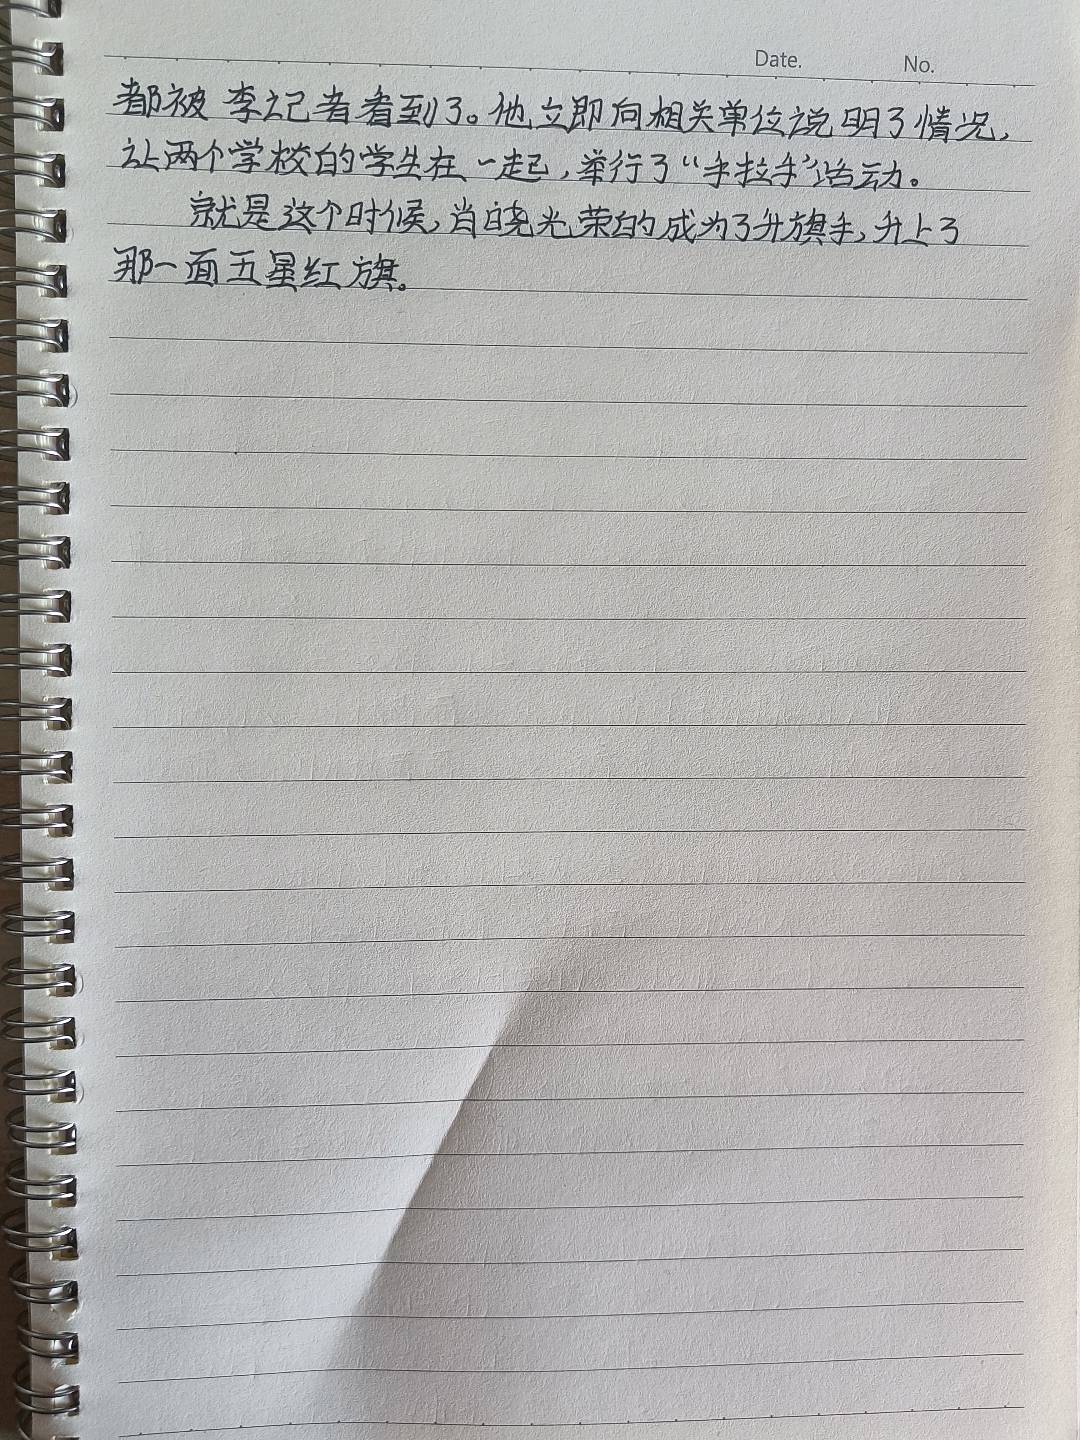 Date. No.
都被李记者看到了。他立即向相关单位说明了情况，
让两个学校的学生在一起，举行了“手拉手”活动。
就是这个时候，肖晓光荣的成为了升旗手，升上了
那一面五星红旗。